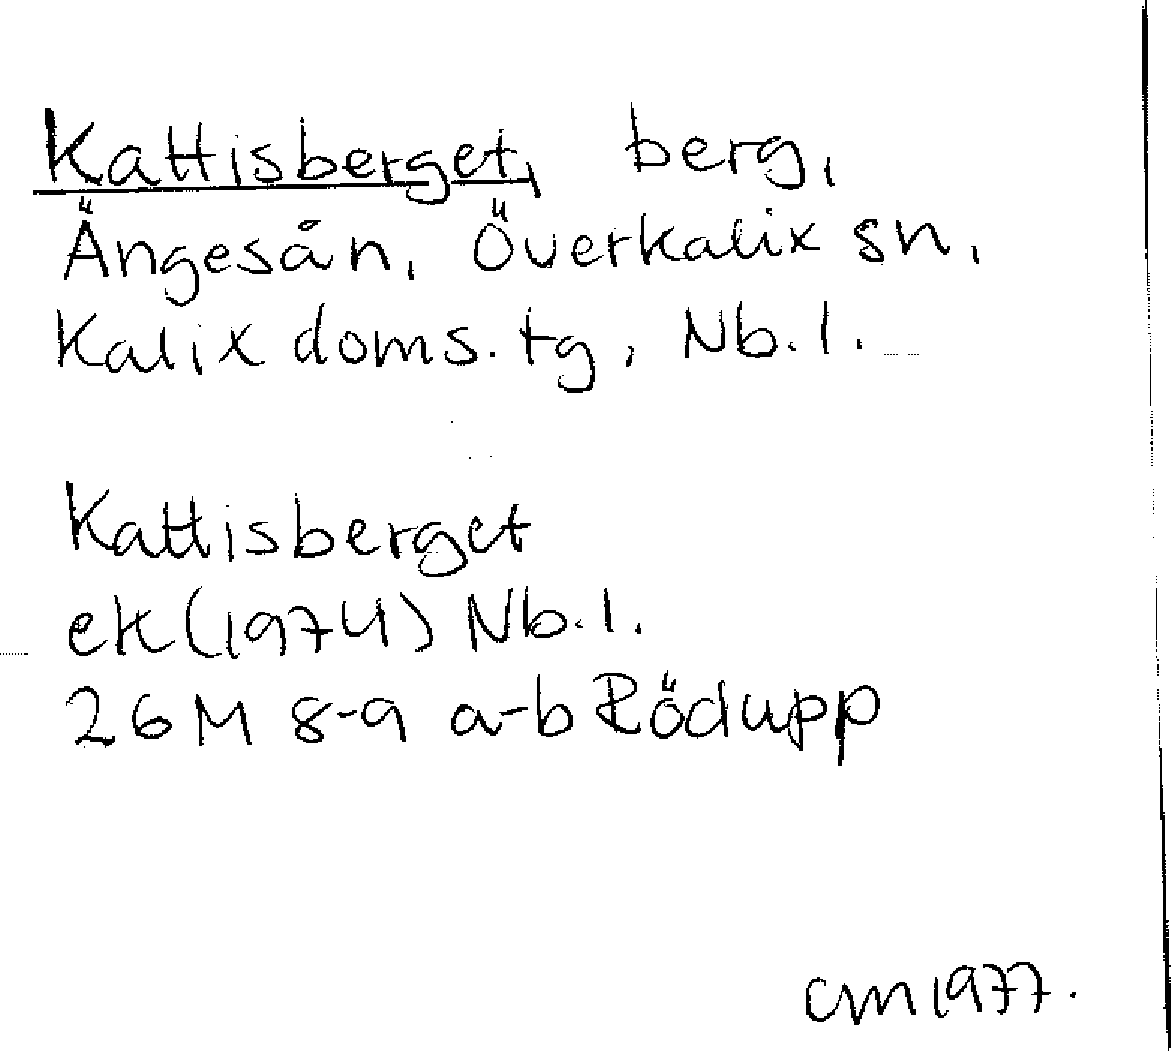 Kattisberget, berg,
Ängesån, Överkalix sn,
Kalix doms. tg, Nb. l.
Kattisberget
ek (1974) Nb. l.
26 M 8-9 a-b Rödupp
CM 1977.